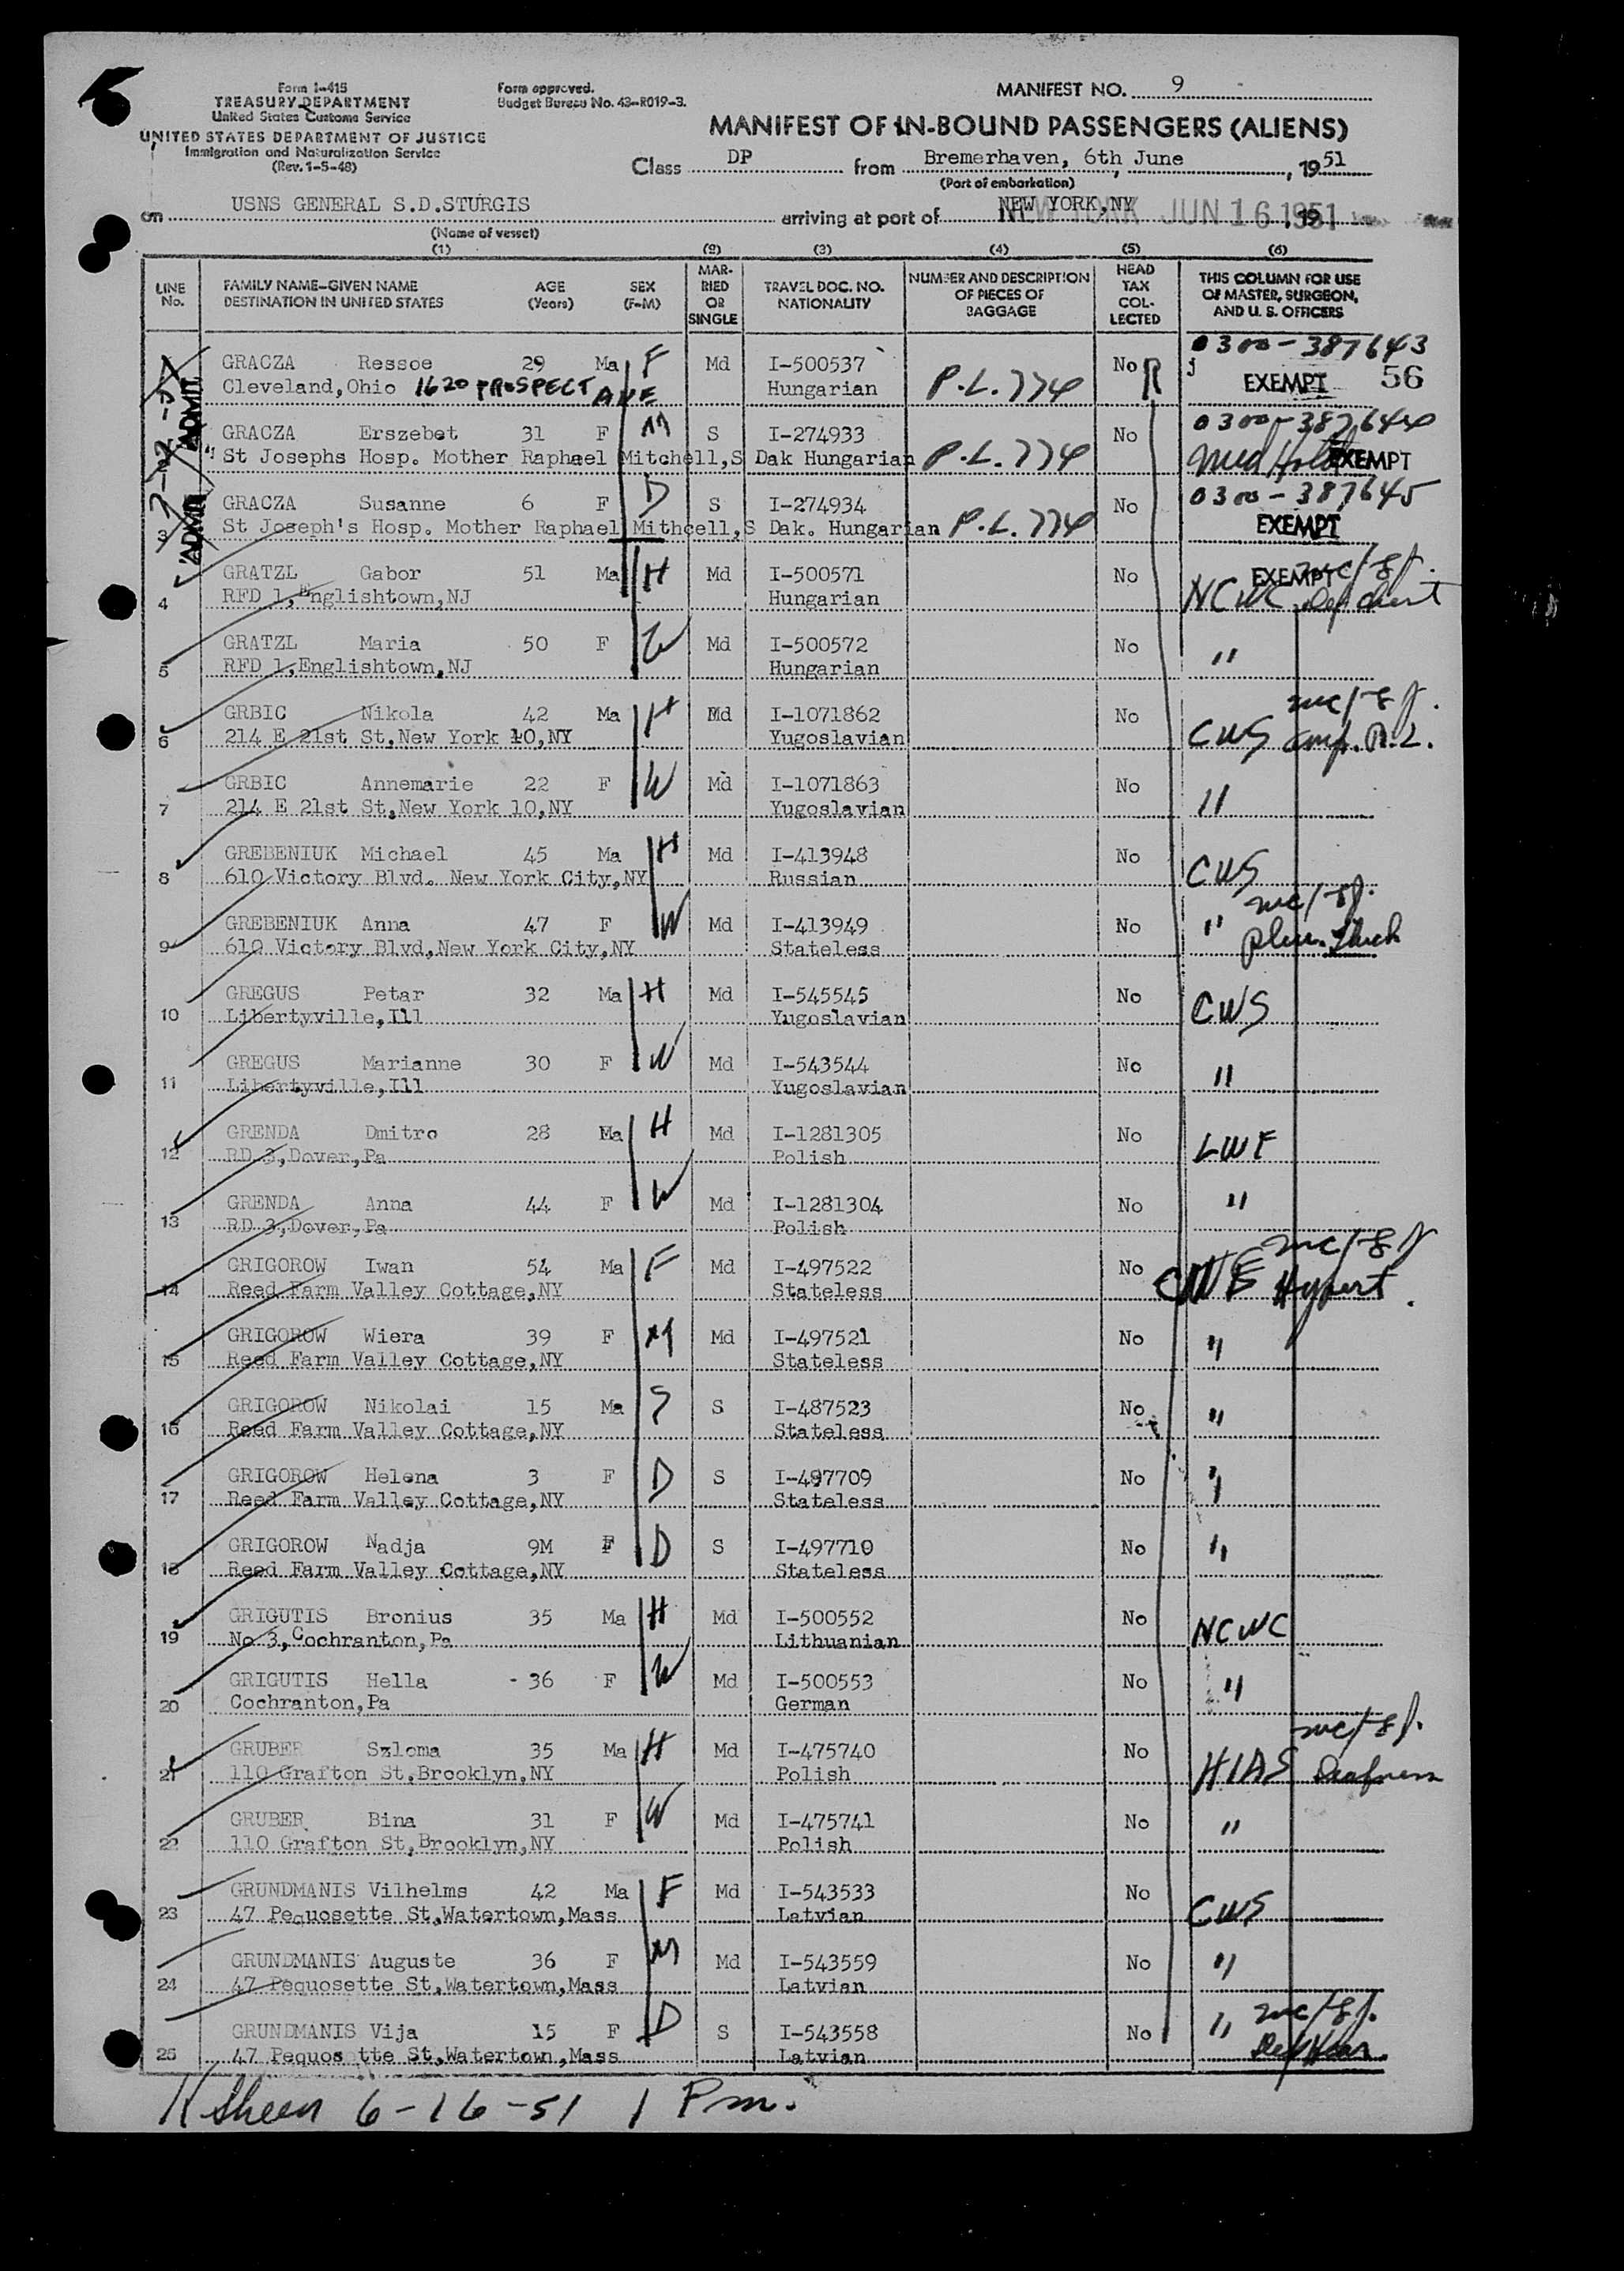 Form I-415
TREASURY DEPARTMENT
United States Customs Service
UNITED STATES DEPARTMENT OF JUSTICE
Immigration and Naturalization Service
(Rev. 1-5-48)
Form approved.
Budget Bureau No. 43-R019-3.
MANIFEST NO. 9
MANIFEST OF IN-BOUND PASSENGERS (ALIENS)
Class DP from Bremerhaven, 6th June, 1951
(Port of embarkation)
on USNS GENERAL S.D.STURGIS arriving at port of NEW YORK,NY, 19
NEW YORK JUN 16 1951
(Name of vessel)
(1) (2) (3) (4) (5) (6)
LINE No. FAMILY NAME-GIVEN NAME DESTINATION IN UNITED STATES AGE (Years) SEX (F-M) MARRIED OR SINGLE TRAVEL DOC. NO. NATIONALITY NUMBER AND DESCRIPTION OF PIECES OF BAGGAGE HEAD TAX COLLECTED THIS COLUMN FOR USE OF MASTER, SURGEON, AND U. S. OFFICERS
ADMIT GRACZA Ressoe 29 Ma F Md I-500537 No R 0300-387643
Cleveland,Ohio 1620 PROSPECT AVE Hungarian P.L.774 EXEMPT 56
GRACZA Erszebet 31 F M S I-274933 No 0300-387644
" St Josephs Hosp. Mother Raphael Mitchell,S Dak Hungarian P.L.774 Med Hold EXEMPT
ADMIT GRACZA Susanne 6 F D S I-274934 No 0300-387645
3 St Joseph's Hosp. Mother Raphael Mithcell,S Dak. Hungarian P.L.774 EXEMPT
GRATZL Gabor 51 Ma H Md I-500571 No EXEMPT
4 RFD 1,Englishtown,NJ Hungarian NCWC
GRATZL Maria 50 F W Md I-500572 No
5 RFD 1,Englishtown,NJ Hungarian "
GRBIC Nikola 42 Ma H Md I-1071862 No
6 214 E 21st St,New York 10,NY Yugoslavian CWS
GRBIC Annemarie 22 F W Md I-1071863 No
7 214 E 21st St,New York 10,NY Yugoslavian "
GREBENIUK Michael 45 Ma H Md I-413948 No
8 610 Victory Blvd. New York City,NY Russian CWS
GREBENIUK Anna 47 F W Md I-413949 No "
9 610 Victory Blvd,New York City,NY Stateless
GREGUS Petar 32 Ma H Md I-545545 No
10 Libertyville,Ill Yugoslavian CWS
GREGUS Marianne 30 F W Md I-543544 No
11 Libertyville,Ill Yugoslavian "
GRENDA Dmitro 28 Ma H Md I-1281305 No
12 RD 3,Dover,Pa Polish LWF
GRENDA Anna 44 F W Md I-1281304 No "
13 RD 3,Dover,Pa Polish
GRIGOROW Iwan 54 Ma F Md I-497522 No
14 Reed Farm Valley Cottage,NY Stateless Hypert.
GRIGOROW Wiera 39 F M Md I-497521 No
15 Reed Farm Valley Cottage,NY Stateless "
GRIGOROW Nikolai 15 Ma S S I-487523 No
16 Reed Farm Valley Cottage,NY Stateless "
GRIGOROW Helena 3 F D S I-497709 No
17 Reed Farm Valley Cottage,NY Stateless "
GRIGOROW Nadja 9M F D S I-497710 No
18 Reed Farm Valley Cottage,NY Stateless "
GRIGUTIS Bronius 35 Ma H Md I-500552 No
19 No 3,Cochranton,Pa Lithuanian NCWC
GRIGUTIS Hella - 36 F W Md I-500553 No
20 Cochranton,Pa German "
GRUBER Szloma 35 Ma H Md I-475740 No
21 110 Grafton St,Brooklyn,NY Polish HIAS Deafness
GRUBER Bina 31 F W Md I-475741 No
22 110 Grafton St,Brooklyn,NY Polish "
GRUNDMANIS Vilhelms 42 Ma F Md I-543533 No
23 47 Pequosette St,Watertown,Mass Latvian CWS
GRUNDMANIS Auguste 36 F M Md I-543559 No
24 47 Pequosette St,Watertown,Mass Latvian "
GRUNDMANIS Vija 15 F D S I-543558 No "
25 47 Pequos tte St,Watertown,Mass Latvian
K Sheen 6-16-51 1 Pm.